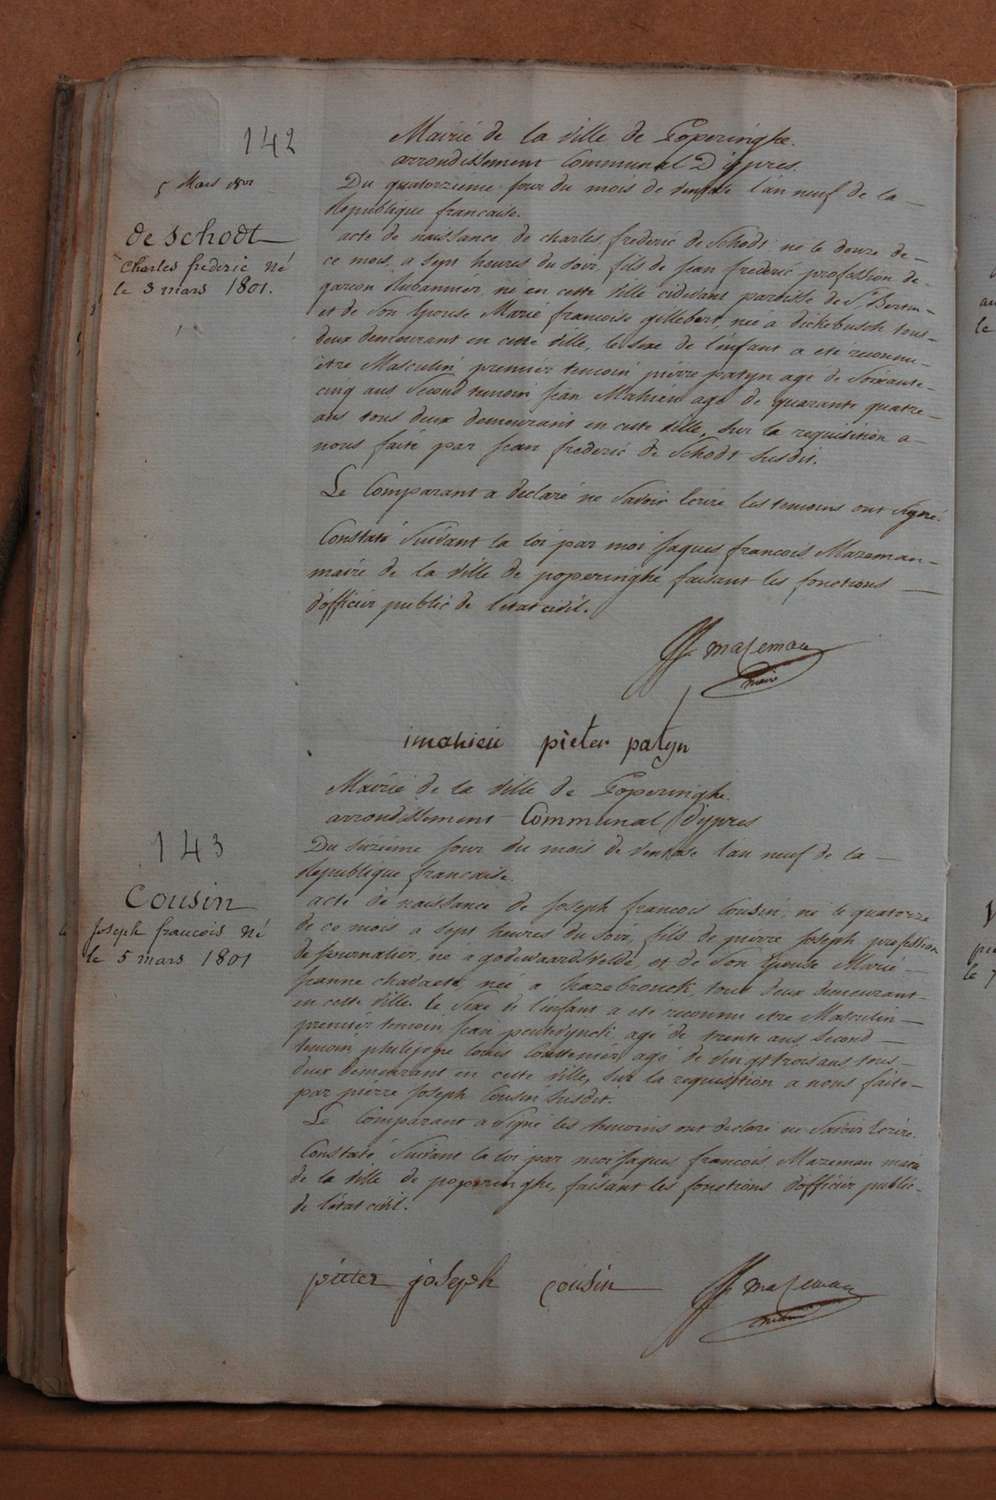 142
5 Mars 1801
de schodt
Charles frederic né
le 3 mars 1801.
Mairié de la Ville de Poperinghe.
arrondissement Communal D'ypres.
Du quatorzieme jour du mois de ventose l'an neuf de la
Republique francaise.
acte de naissance de charles frederic de Schodt né le douze de
ce mois a sept heures du soir, fils de jean frederic profession de
garcon né en cette Ville cidevant paroisse de St Bertin
et de Son Epouse Marie francoise gillebert, née à dickebusch tous
deux demeurant en cette ville, le sexe de l'enfant a eté reconnu
être Masculin, premier temoin pierre patyn agé de soixante
cinq ans Second temoin jean Mahieu agé de quarante quatre
ans tous deux demeurant en cette ville, sur la requisition a
nous faite par jean frederic de Schodt susdit.
Le Comparant a declaré ne savoir Ecrire les temoins ont signé.
Constaté Suivant la loi par moi jaques francois Mazeman
maire de la ville de poperinghe faisant les fonctions
d'officier public de l'etat civil.
mazeman
maire
imahieu pieter patyn
143
Cousin
joseph francois né
le 5 mars 1801
Mairié de la Ville de Poperinghe.
arrondissement Communal D'ypres
Du seizieme jour du mois de ventose l'an neuf de la
Republique francaise.
acte de naissance de joseph francois Cousin, né le quatorze
de ce mois a sept heures du soir, fils de pierre joseph profession
de journalier, né à godewaersvelde et de Son Epouse Marié
jeanne née a hazebrouck, tous deux demeurant
en cette ville. le sexe de l'enfant a eté reconnu etre Masculin
premier temoin jean agé de trente ans second
temoin louis agé de vingt trois ans tous
deux demeurant en cette ville, sur la requisition a nous faite
par pierre joseph Cousin susdit.
Le Comparant a signé les temoins ont declaré ne savoir Ecrire.
Constaté Suivant la loi par moi jaques francois Mazeman maire
de la ville de poperinghe, faisant les fonctions d'officier public
de l'etat civil.
pieter joseph cousin mazeman
maire